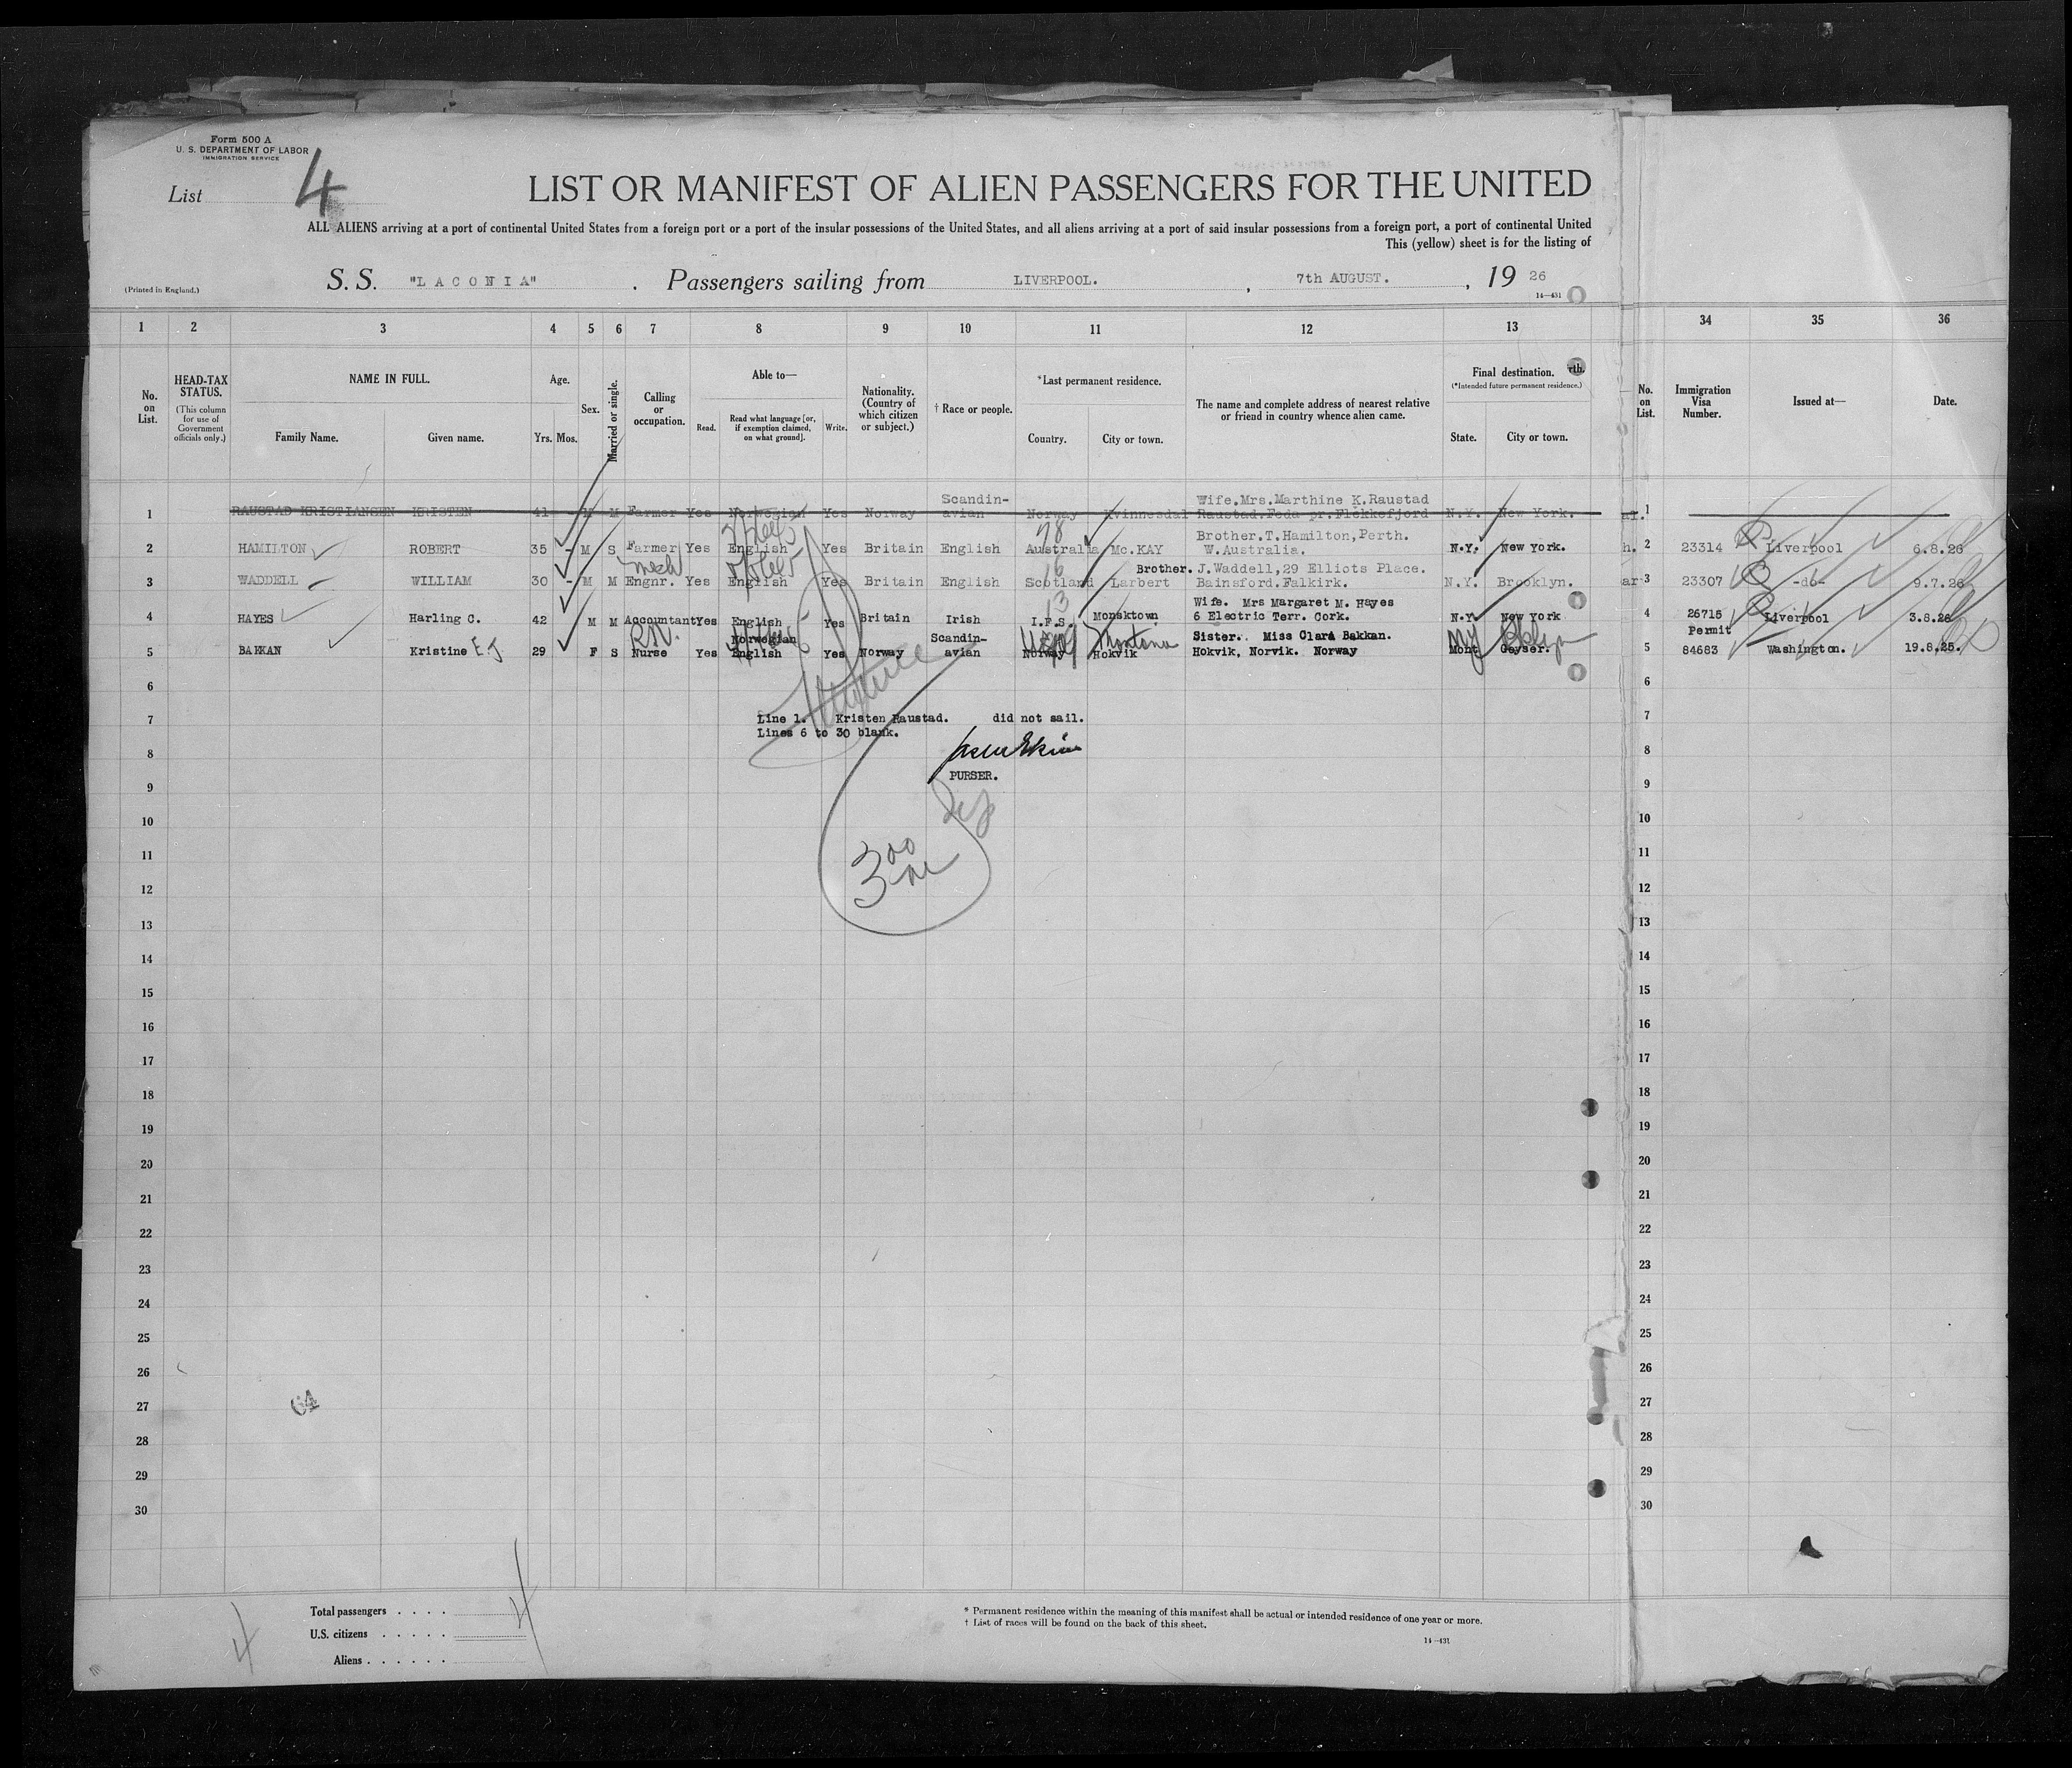 Form 500 A
U. S. DEPARTMENT OF LABOR
IMMIGRATION SERVICE
List 4
LIST OR MANIFEST OF ALIEN PASSENGERS FOR THE UNITED
ALL ALIENS arriving at a port of continental United States from a foreign port or a port of the insular possessions of the United States, and all aliens arriving at a port of said insular possessions from a foreign port, a port of continental United
This (yellow) sheet is for the listing of
(Printed in England.) S. S. "LACONIA" . Passengers sailing from LIVERPOOL. , 7th AUGUST. , 19 26
14—431
1 2 3 4 5 6 7 8 9 10 11 12 13 34 35 36
No. on List. HEAD-TAX STATUS. (This column for use of Government officials only.) NAME IN FULL. Family Name. Given name. Age. Yrs. Mos. Sex. Married or single. Calling or occupation. Able to— Read. Read what language [or, if exemption claimed, on what ground]. Write. Nationality. (Country of which citizen or subject.) † Race or people. *Last permanent residence. Country. City or town. The name and complete address of nearest relative or friend in country whence alien came. Final destination. (*Intended future permanent residence.) State. City or town. No. on List. Immigration Visa Number. Issued at— Date.
Scandin- Wife.Mrs.Marthine K.Raustad
1 RAUSTAD KRISTIANSEN KRISTEN 41 - M M Farmer Yes Norwegian Yes Norway avian Norway Kvinnesdal Raustad.Feda pr.Flekkefjord N.Y. New York. 1
28 Brother.T.Hamilton,Perth.
2 HAMILTON ROBERT 35 - M S Farmer Yes English Yes Britain English Australia Mc.KAY W.Australia. N.Y. New York. 2 23314 Liverpool 6.8.26
mech 16 Brother. J.Waddell,29 Elliots Place.
3 WADDELL WILLIAM 30 - M M Engnr. Yes English Yes Britain English Scotland Larbert Bainsford.Falkirk. N.Y. Brooklyn. 3 23307 -do- 9.7.26
13 Wife. Mrs Margaret M. Hayes
4 HAYES Harling C. 42 M M Accountant Yes English Yes Britain Irish I.F.S. Monsktown 6 Electric Terr. Cork. N.Y New York 4 26715 Liverpool 3.8.26
R.N. Norwegian Scandin- Montana Sister. Miss Clara Bakkan. Permit
5 BAKKAN Kristine E J 29 F S Nurse Yes English Yes Norway avian Norway Hokvik Hokvik, Norvik. Norway Mont Geyser. 5 84683 Washington. 19.8.25.
6 6
7 Line 1. Kristen Raustad. did not sail. 7
Lines 6 to 30 blank.
8 8
PURSER.
9 9
10 10
11 11
300
12 12
13 13
14 14
15 15
16 16
17 17
18 18
19 19
20 20
21 21
22 22
23 23
24 24
25 25
26 26
27 27
28 28
29 29
30 30
Total passengers . . . . 4
U.S. citizens . . . . .
Aliens . . . . . .
4
* Permanent residence within the meaning of this manifest shall be actual or intended residence of one year or more.
† List of races will be found on the back of this sheet.
14—431